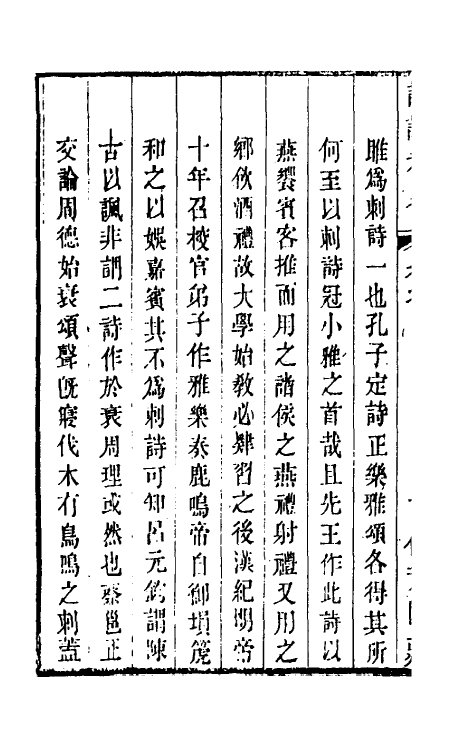 雎爲刺詩一也孔子定詩正樂雅頌各得其所
何至以刺詩冠小雅之首哉且先王作此詩以
燕饗賓客推而用之諸侯之燕禮射禮又用之
鄉飲酒禮故大學始教必肄習之後漢紀明帝
十年召校官弟子作雅樂奏鹿鳴帝自御塤篪
和之以娛嘉賓其不爲刺詩可知呂元鈞謂陳
古以諷非謂二詩作於衰周理或然也蔡邕正
交論周德始衰頌聲旣寢伐木有鳥鳴之刺蓋